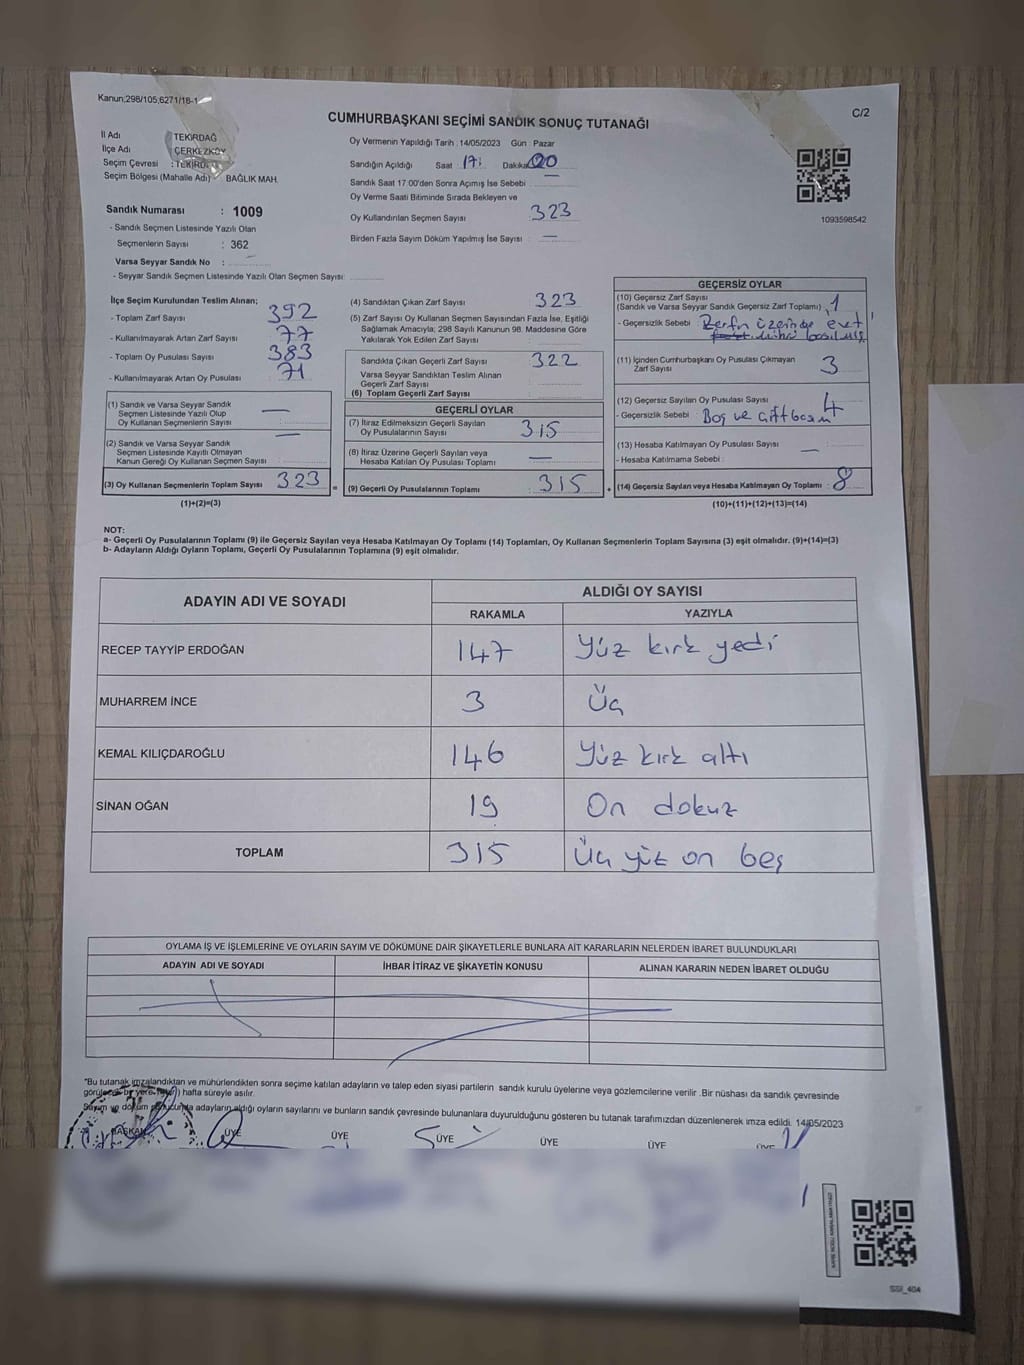 Kanun,298/105,6271/18-1
C/2
CUMHURBAŞKANI SEÇİMİ SANDIK SONUÇ TUTANAĞI
İl Adı TEKİRDAĞ
İlçe Adı : ÇERKEZKÖY
Seçim Çevresi : TEKİRDAĞ
Seçim Bölgesi (Mahalle Adı) BAĞLIK MAH.
Oy Vermenin Yapıldığı Tarih : 14/05/2023 Gün : Pazar
Sandığın Açıldığı Saat 17: Dakika 00
Sandık Saat 17:00'den Sonra Açımış İse Sebebi —
Oy Verme Saati Bitiminde Sırada Bekleyen ve
Oy Kullandırılan Seçmen Sayısı : 323
Birden Fazla Sayım Döküm Yapılmış İse Sayısı : —
1093598542
Sandık Numarası : 1009
- Sandık Seçmen Listesinde Yazılı Olan
Seçmenlerin Sayısı : 362
Varsa Seyyar Sandık No :
- Seyyar Sandık Seçmen Listesinde Yazılı Olan Seçmen Sayısı:
İlçe Seçim Kurulundan Teslim Alınan;
- Toplam Zarf Sayısı 392
- Kullanılmayarak Artan Zarf Sayısı 77
- Toplam Oy Pusulası Sayısı 383
- Kullanılmayarak Artan Oy Pusulası 71
(1) Sandık ve Varsa Seyyar Sandık
Seçmen Listesinde Yazılı Olup
Oy Kullanan Seçmenlerin Sayısı —
(2) Sandık ve Varsa Seyyar Sandık
Seçmen Listesinde Kayıtlı Olmayan
Kanun Gereği Oy Kullanan Seçmen Sayısı : —
(3) Oy Kullanan Seçmenlerin Toplam Sayısı 323
(1)+(2)=(3)
(4) Sandıktan Çıkan Zarf Sayısı 323
(5) Zarf Sayısı Oy Kullanan Seçmen Sayısından Fazla İse, Eşitliği
Sağlamak Amacıyla; 298 Sayılı Kanunun 98. Maddesine Göre
Yakılarak Yok Edilen Zarf Sayısı
Sandıkta Çıkan Geçerli Zarf Sayısı 322
Varsa Seyyar Sandıktan Teslim Alınan
Geçerli Zarf Sayısı
(6) Toplam Geçerli Zarf Sayısı
GEÇERLİ OYLAR
(7) İtiraz Edilmeksizin Geçerli Sayılan
Oy Pusulalarının Sayısı 315
(8) İtiraz Üzerine Geçerli Sayılan veya
Hesaba Katılan Oy Pusulası Toplamı —
= (9) Geçerli Oy Pusulalarının Toplamı : 315
GEÇERSİZ OYLAR
(10) Geçersiz Zarf Sayısı
(Sandık ve Varsa Seyyar Sandık Geçersiz Zarf Toplamı) 1
- Geçersizlik Sebebi : üzerinde evet
(11) İçinden Cumhurbaşkanı Oy Pusulası Çıkmayan
Zarf Sayısı 3
(12) Geçersiz Sayılan Oy Pusulası Sayısı 4
- Geçersizlik Sebebi : Boş ve çift
(13) Hesaba Katılmayan Oy Pusulası Sayısı : —
- Hesaba Katılmama Sebebi :
+ (14) Geçersiz Sayılan veya Hesaba Katılmayan Oy Toplamı : 8
(10)+(11)+(12)+(13)=(14)
NOT:
a- Geçerli Oy Pusulalarının Toplamı (9) ile Geçersiz Sayılan veya Hesaba Katılmayan Oy Toplamı (14) Toplamları, Oy Kullanan Seçmenlerin Toplam Sayısına (3) eşit olmalıdır. (9)+(14)=(3)
b- Adayların Aldığı Oyların Toplamı, Geçerli Oy Pusulalarının Toplamına (9) eşit olmalıdır.
ADAYIN ADI VE SOYADI ALDIĞI OY SAYISI
RAKAMLA YAZIYLA
RECEP TAYYİP ERDOĞAN 147 Yüz kırk yedi
MUHARREM İNCE 3 Üç
KEMAL KILIÇDAROĞLU 146 Yüz kırk altı
SİNAN OĞAN 19 On dokuz
TOPLAM 315 Üç yüz on beş
OYLAMA İŞ VE İŞLEMLERİNE VE OYLARIN SAYIM VE DÖKÜMÜNE DAİR ŞİKAYETLERLE BUNLARA AİT KARARLARIN NELERDEN İBARET BULUNDUKLARI
ADAYIN ADI VE SOYADI İHBAR İTİRAZ VE ŞİKAYETİN KONUSU ALINAN KARARIN NEDEN İBARET OLDUĞU
"Bu tutanak imzalandıktan ve mühürlendikten sonra seçime katılan adayların ve talep eden siyasi partilerin sandık kurulu üyelerine veya gözlemcilerine verilir. Bir nüshası da sandık çevresinde
görülecek bir yere hafta süreyle asılır.
Sayım ve döküm sonucunda adayların aldığı oyların sayılarını ve bunların sandık çevresinde bulunanlara duyurulduğunu gösteren bu tutanak tarafımızdan düzenlenerek imza edildi. 14/05/2023
BAŞKAN ÜYE ÜYE ÜYE ÜYE ÜYE ÜYE
SSİ_404